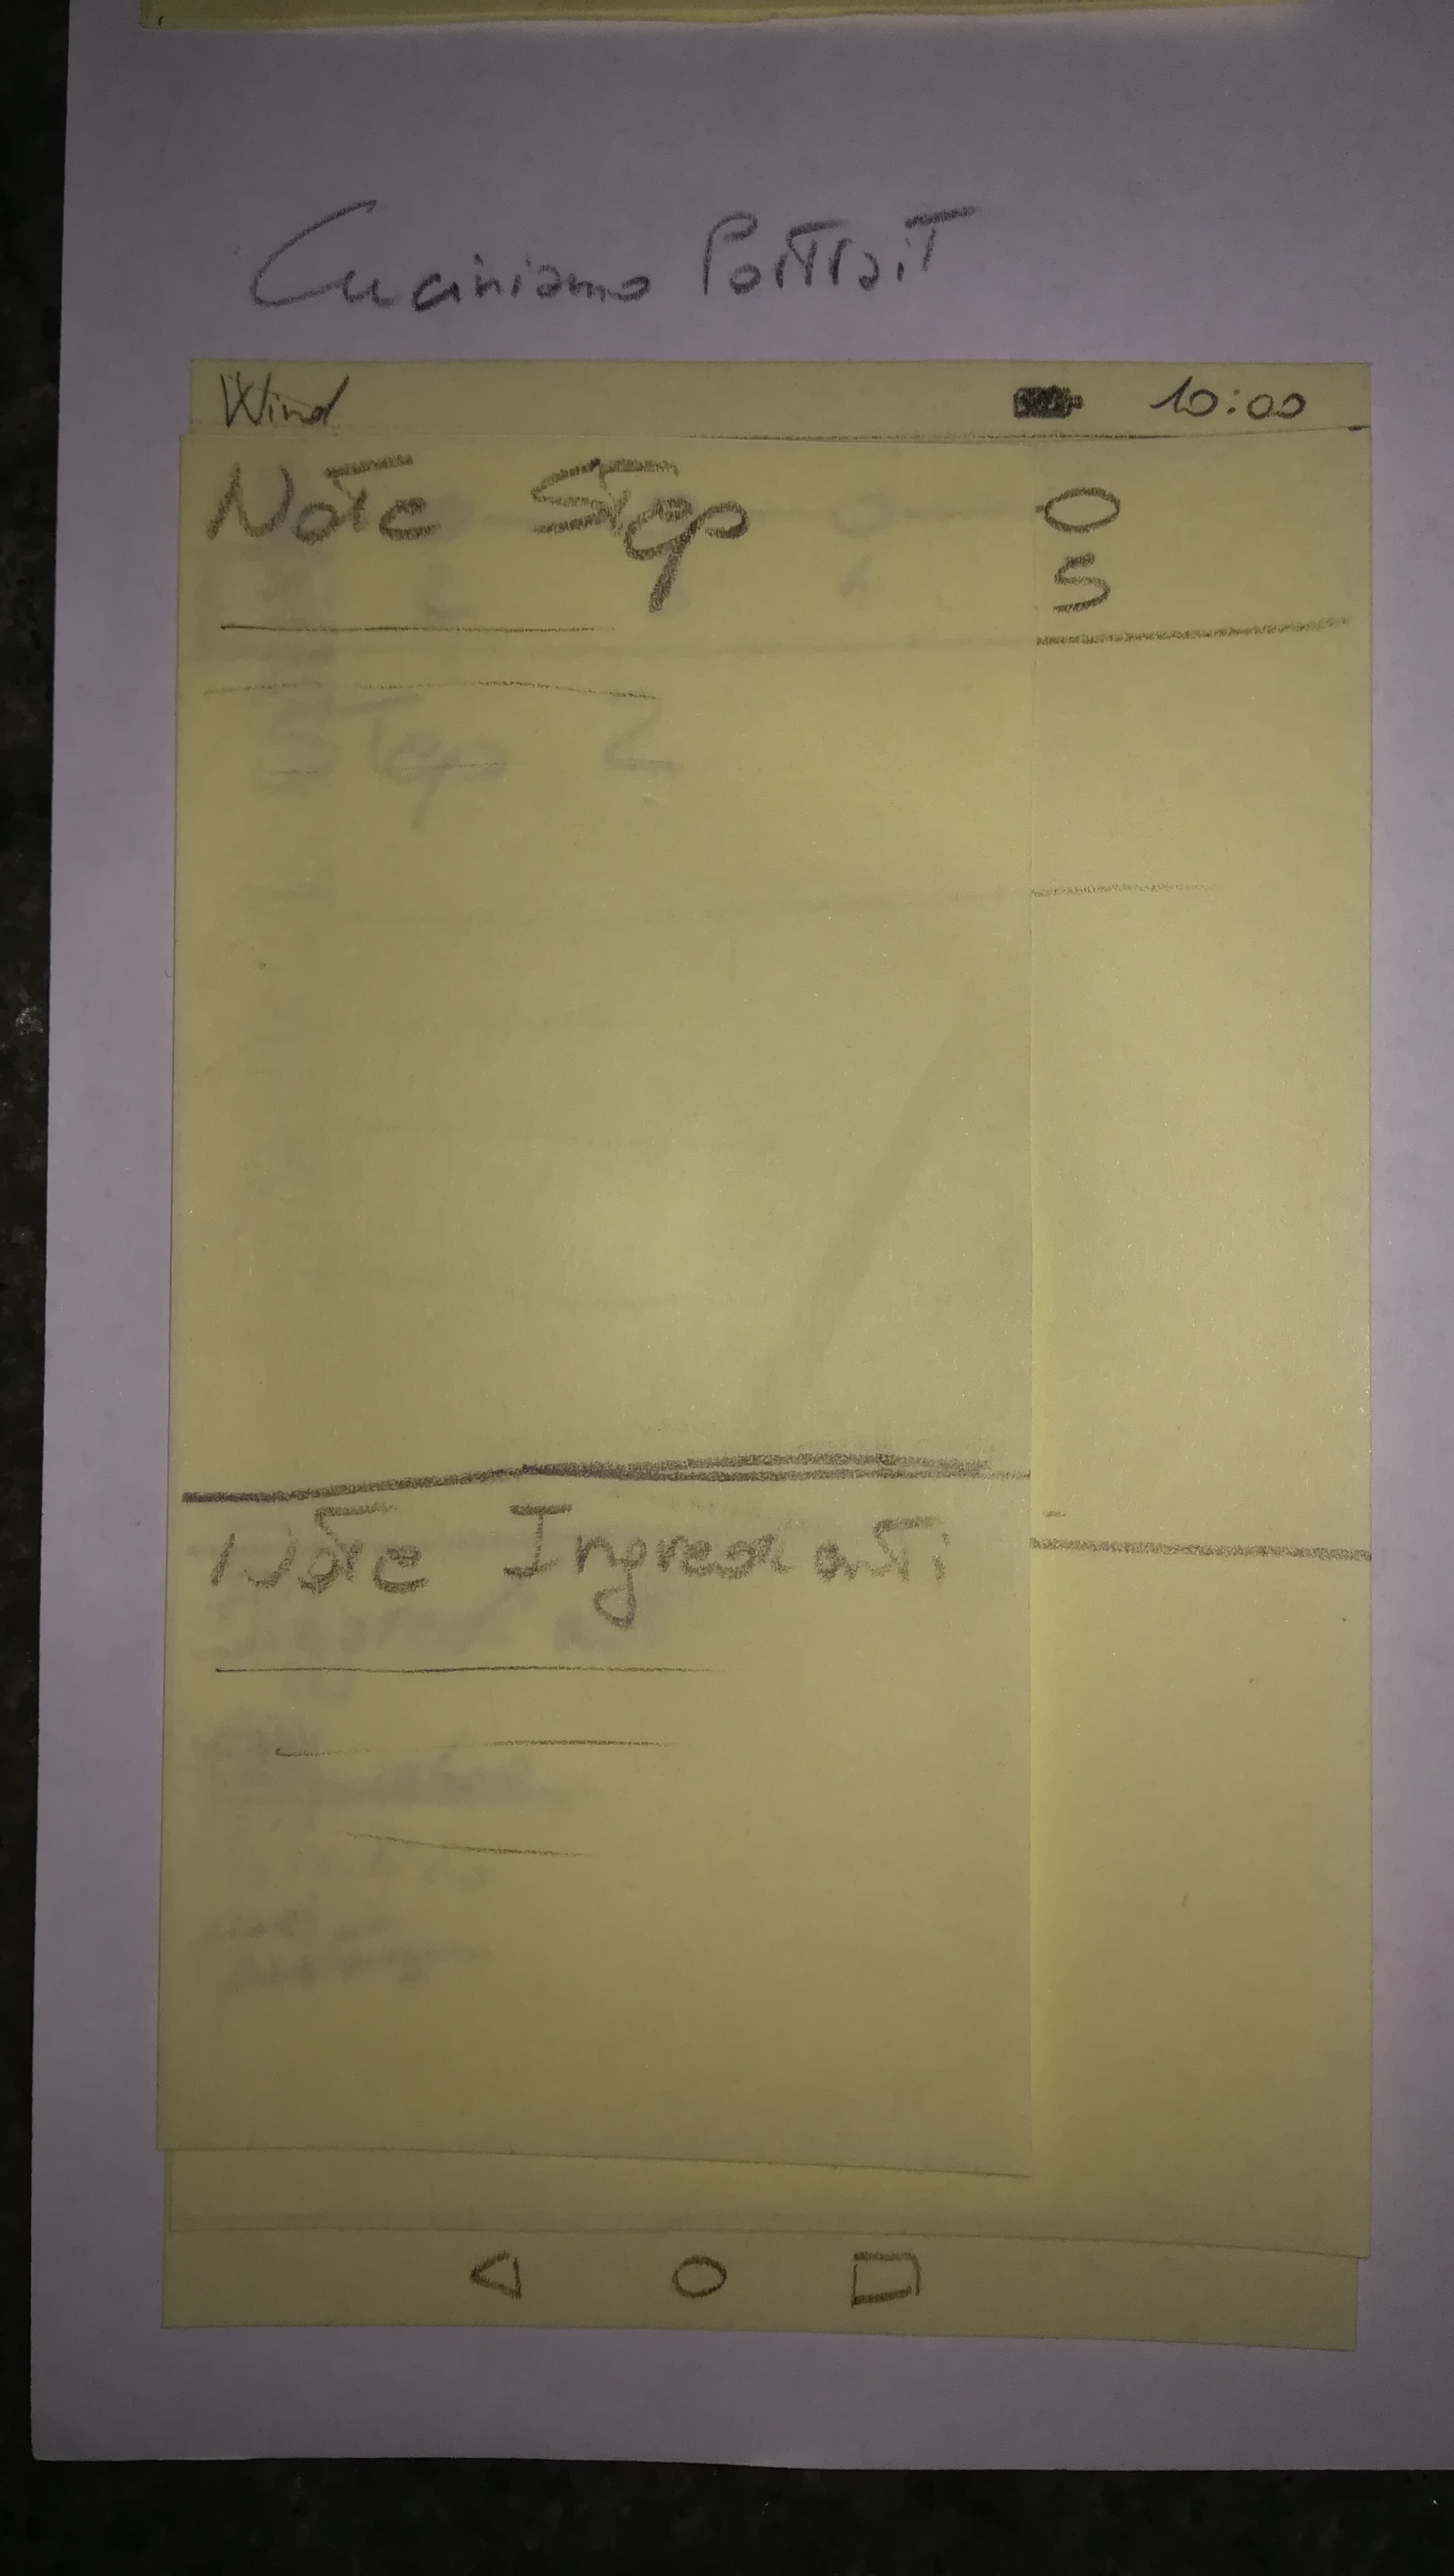 Cuciniamo Portrait
Wind 10:00
Note Step O
5
Step 2
Note Ingredienti